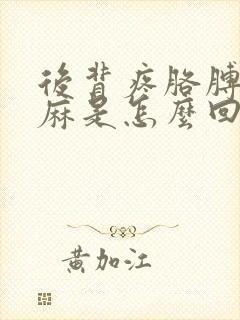 後背疼胳膊
麻是怎麼回
黄加江